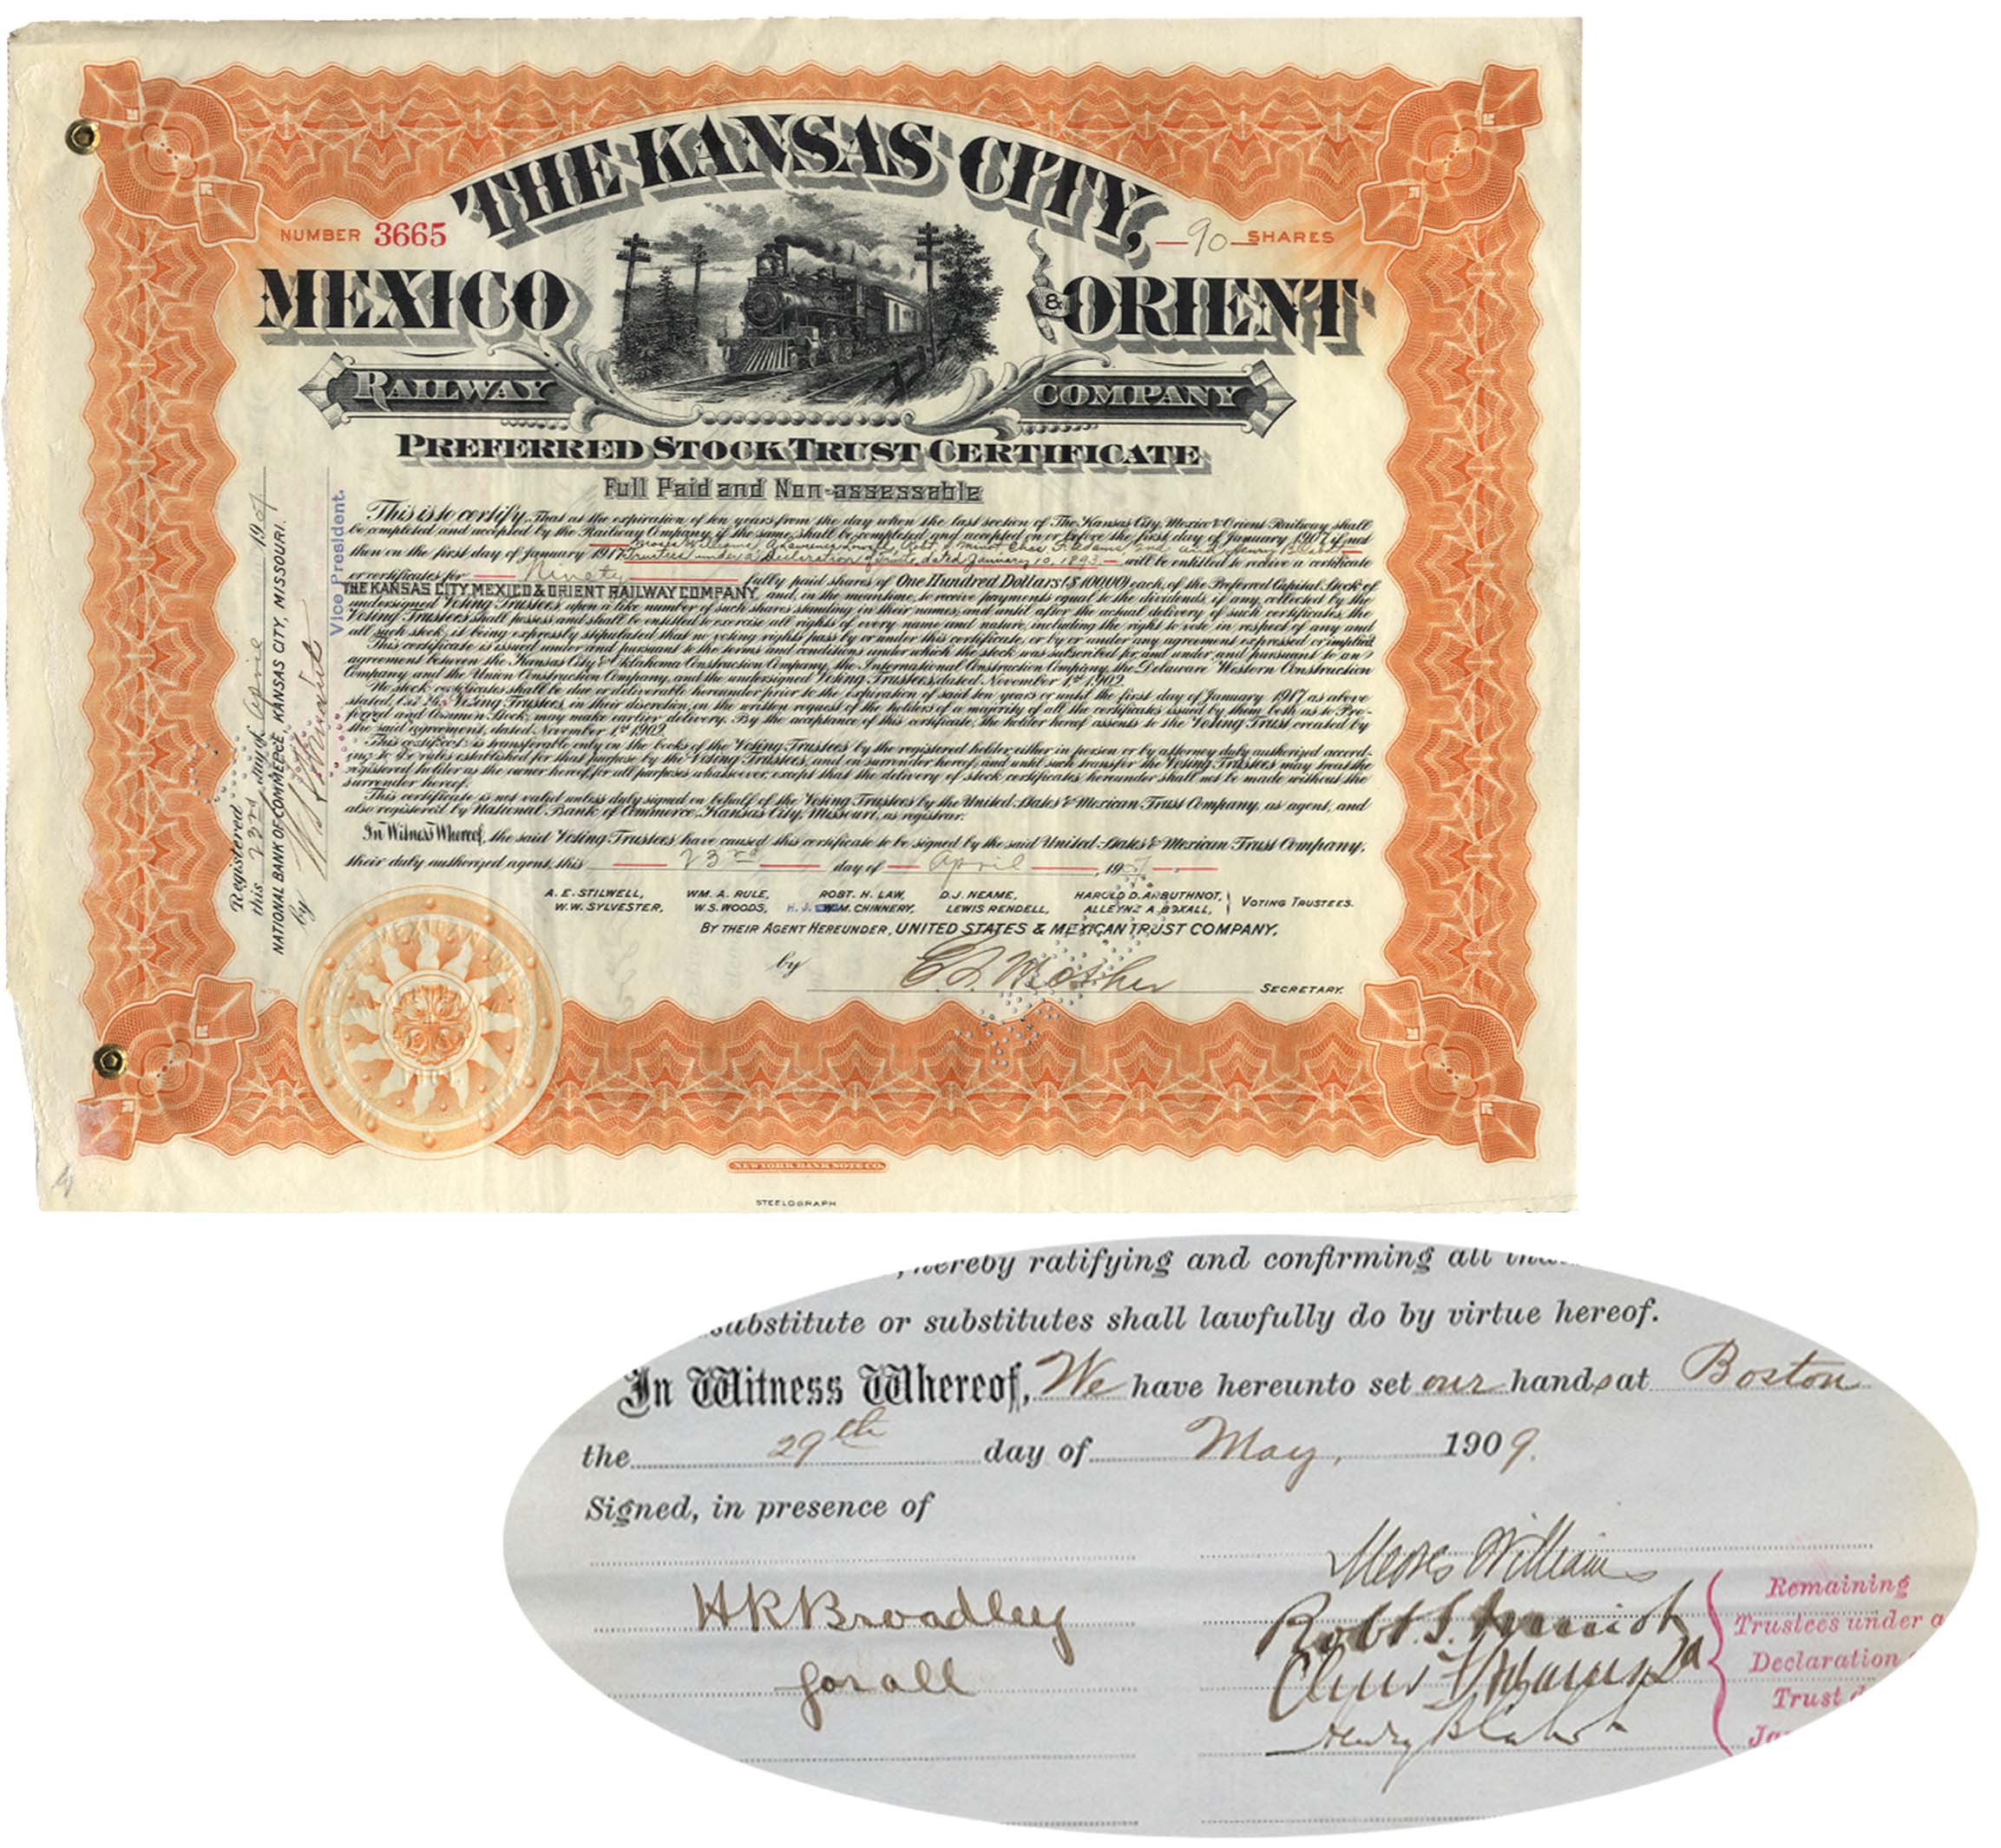 THE KANSAS CITY,
NUMBER 3665
90 SHARES
MEXICO & ORIENT
RAILWAY COMPANY
PREFERRED STOCK TRUST CERTIFICATE
Full Paid and Non-assessable
This is to certify, That at the expiration of ten years from the day when the last section of The Kansas City, Mexico & Orient Railway shall
be completed and accepted by the Railway Company, if the same shall be completed and accepted on or before the first day of January 1907, if not
then on the first day of January 1917 Moses Williams, A. Lawrence Lowell, Robt. S. Minot, Chas. F. Adams 2nd and Henry B. Cabot
Trustees under a Declaration of Trust, dated January 10, 1893 will be entitled to receive a certificate
or certificates for Ninety fully paid shares of One Hundred Dollars ($100.00) each, of the Preferred Capital Stock of
THE KANSAS CITY, MEXICO & ORIENT RAILWAY COMPANY, and, in the meantime, to receive payments equal to the dividends, if any, collected by the
undersigned Voting Trustees, upon a like number of such shares standing in their names, and until after the actual delivery of such certificates, the
Voting Trustees shall possess and shall be entitled to exercise all rights of every name and nature, including the right to vote, in respect of any and
all such stock, it being expressly stipulated that no voting rights pass by or under this certificate, or by or under any agreement expressed or implied
This certificate is issued under and pursuant to the terms and conditions under which the stock was subscribed for, and under, and pursuant to an
agreement between the Kansas City & Oklahoma Construction Company, the International Construction Company, the Delaware Western Construction
Company and the Union Construction Company, and the undersigned Voting Trustees, dated November 1st 1902.
No stock certificates shall be due or deliverable hereunder prior to the expiration of said ten years or until the first day of January 1917 as above
stated, but the Voting Trustees, in their discretion, on the written request of the holders of a majority of all the certificates issued by them, both as to Pre-
ferred and Common Stock, may make earlier delivery. By the acceptance of this certificate, the holder hereof assents to the Voting Trust created by
the said agreement, dated November 1st 1902.
This certificate is transferable only on the books of the Voting Trustees by the registered holder, either in person or by attorney duly authorized accord-
ing to the rules established for that purpose by the Voting Trustees, and on surrender hereof, and until such transfer the Voting Trustees may treat the
registered holder as the owner hereof, for all purposes whatsoever, except that the delivery of stock certificates hereunder shall not be made without the
surrender hereof.
This certificate is not valid unless duly signed on behalf of the Voting Trustees by the United States & Mexican Trust Company, as agent, and
also registered by National Bank of Commerce, Kansas City, Missouri, as registrar.
In Witness Whereof, the said Voting Trustees have caused this certificate to be signed by the said United States & Mexican Trust Company,
their duly authorized agent, this 23rd day of April, 1907
A. E. STILWELL, WM. A. RULE, ROBT. H. LAW, D. J. NEAME, HAROLD D. ARBUTHNOT,
W. W. SYLVESTER, W. S. WOODS, H. J. CHINNERY, LEWIS RENDELL, ALLEYNE A. BOXALL, VOTING TRUSTEES.
BY THEIR AGENT HEREUNDER, UNITED STATES & MEXICAN TRUST COMPANY,
by E. L. Mosher SECRETARY.
Registered
this 23rd day of April 1907
NATIONAL BANK OF COMMERCE, KANSAS CITY, MISSOURI.
by
Vice President.
NEW YORK BANK NOTE CO.
STEELOGRAPH
, hereby ratifying and confirming all
substitute or substitutes shall lawfully do by virtue hereof.
In Witness Whereof, We have hereunto set our hands at Boston
the 29th day of May, 1909.
Signed, in presence of
Moses Williams
HKBroadley
Robt. S. Minot
for all
Chas F Adams 2d
Henry B Cabot
Remaining
Trustees under a
Declaration
Trust